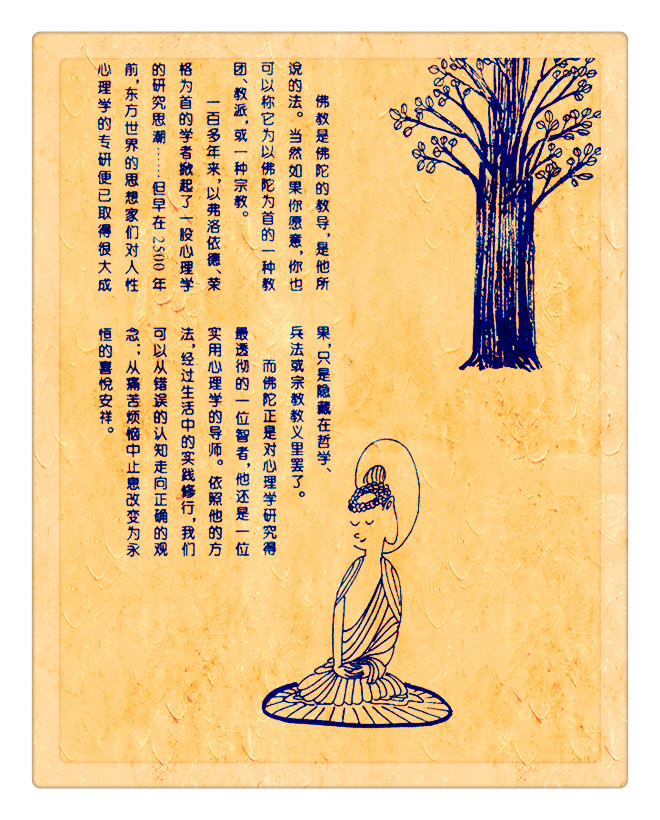 佛教是佛陀的教导，是他所
说的法。当然如果你愿意，你也
可以称它为以佛陀为首的一种教
团、教派，或一种宗教。
一百多年来，以弗洛依德、荣
格为首的学者掀起了一股心理学
的研究思潮……但早在2500年
前，东方世界的思想家们对人性
心理学的专研便已取得很大成
果，只是隐藏在哲学、
兵法或宗教教义里罢了。
而佛陀正是对心理学研究得
最透彻的一位智者，他还是一位
实用心理学的导师。依照他的方
法，经过生活中的实践修行，我们
可以从错误的认知走向正确的观
念；从痛苦烦恼中止息改变为永
恒的喜悦安祥。